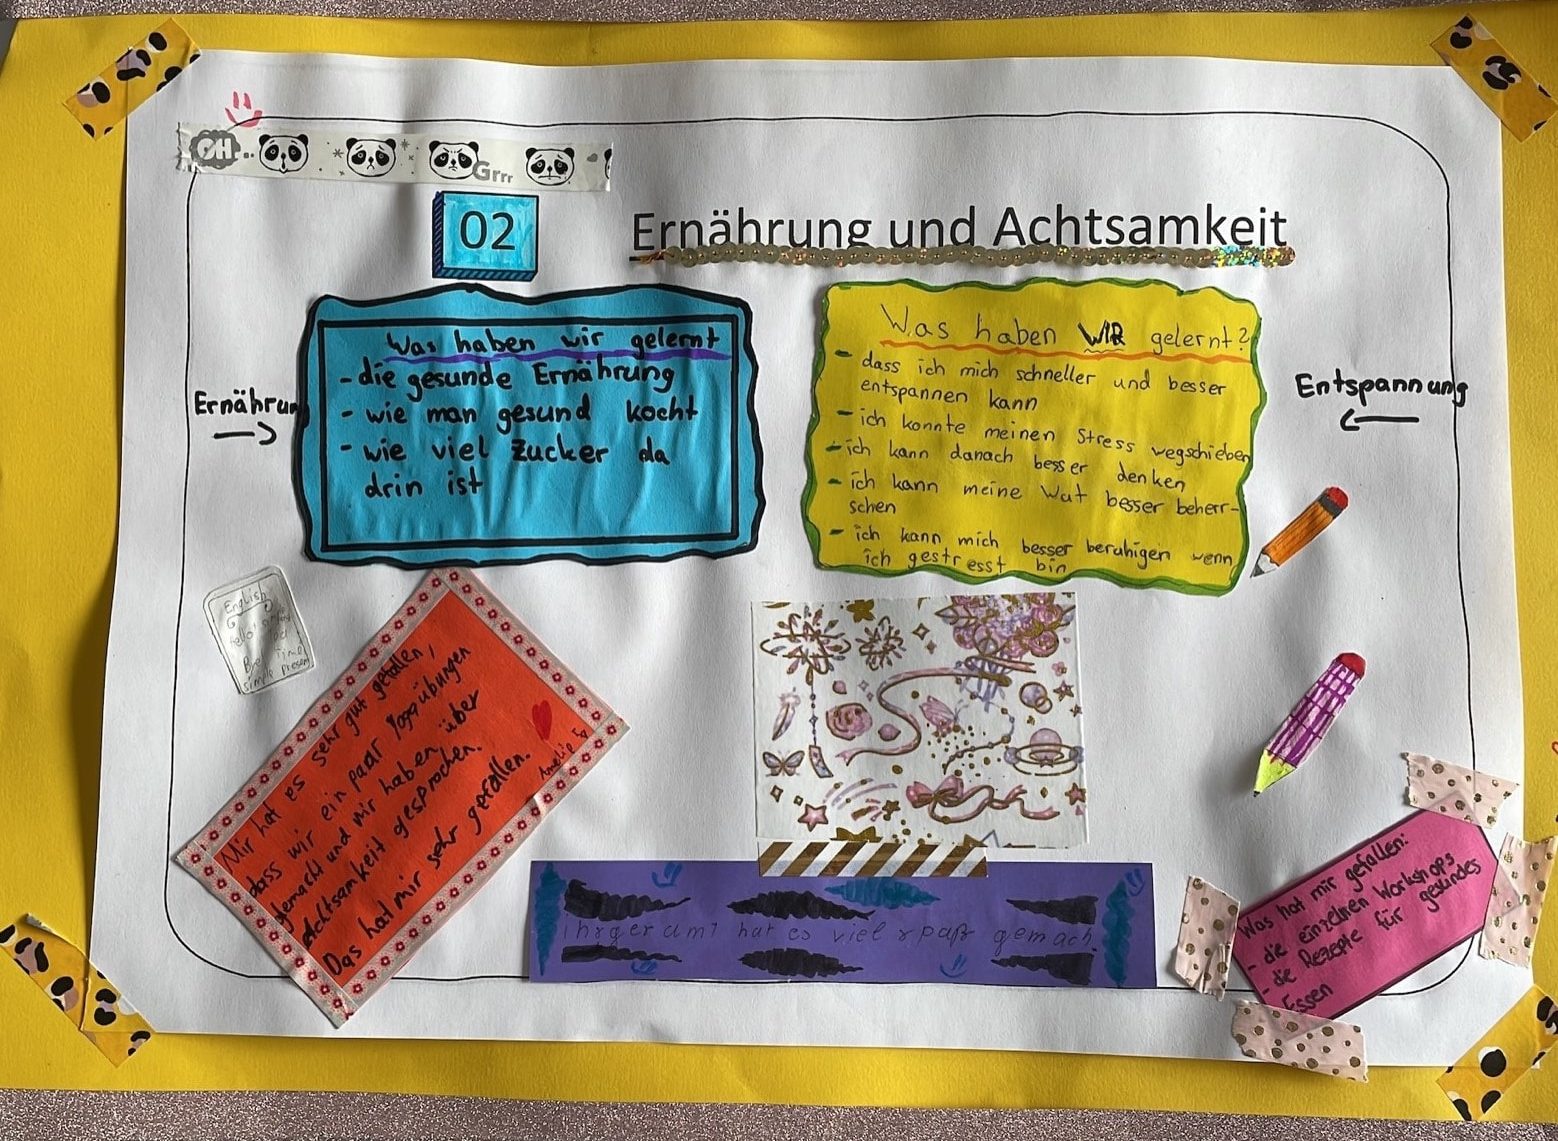 OH...
Grrr
02
Ernährung und Achtsamkeit
Ernährun
Was haben wir gelernt
- die gesunde Ernährung
- wie man gesund kocht
- wie viel Zucker da
drin ist
Was haben WIR gelernt?
- dass ich mich schneller und besser
entspannen kann
- ich konnte meinen Stress wegschieben
- ich kann danach besser denken
- ich kann meine Wut besser beherr-
schen
- ich kann mich besser beruhigen wenn
ich gestresst bin
Entspannung
English
Bye Time
simple present
Mir hat es sehr gut gefallen,
dass wir ein paar Yogaübungen
gemacht und mir haben über
Achtsamkeit gesprochen.
Das hat mir sehr gefallen.
hat es viel spaß gemach
Was hat mir gefallen:
- die einzelnen Workshops
- die Rezepte für gesundes
Essen